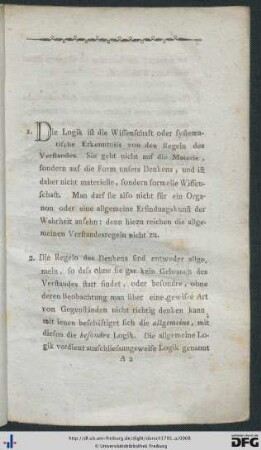 1. Die Logik ist die Wissenschaft oder systema-
tische Erkenntniss von den Regeln des
Verstandes. Sie geht nicht auf die Materie,
sondern auf die Form unsers Denkens, und ist
daher nicht materielle, sondern formelle Wissen-
schaft. Man darf sie also nicht für ein Orga-
non oder eine allgemeine Erfindungskunst der
Wahrheit ansehn: denn hierzu reichen die allge-
meinen Verstandesregeln nicht zu.
2. Die Regeln des Denkens sind entweder allge-
mein, so dass ohne sie gar kein Gebrauch des
Verstandes statt findet, oder besondre, ohne
deren Beobachtung man über eine gewisse Art
von Gegenständen nicht richtig denken kann;
mit jenen beschäftiget sich die allgemeine, mit
diesen die besondre Logik. Die allgemeine Lo-
gik verdient ausschliessungsweise Logik genannt
A 2
© Universitätsbibliothek Freiburg
DFG